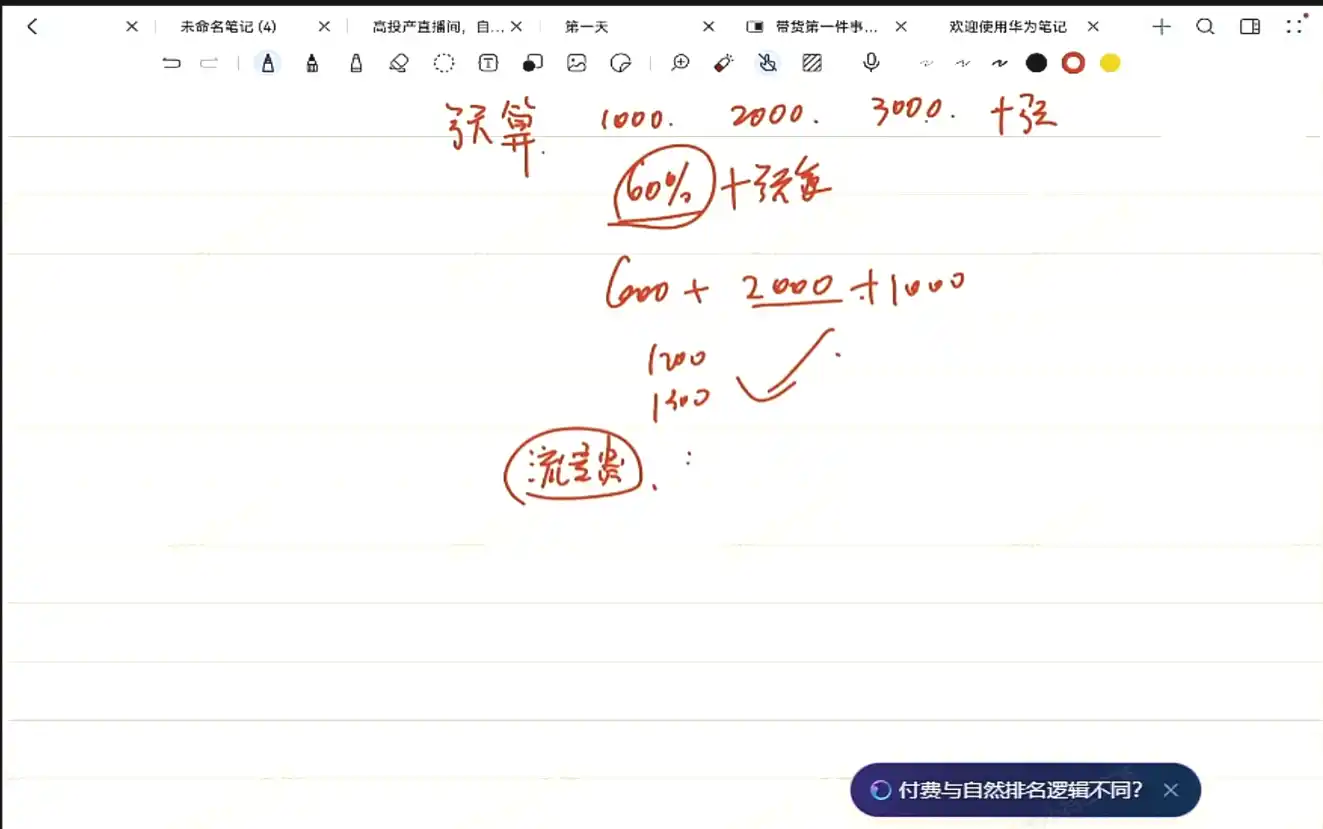 未命名笔记 (4) 高投产直播间，自... 第一天 带货第一件事... 欢迎使用华为笔记
预算 1000. 2000. 3000. 十张
60% + 预算
600 + 2000 + 1000
1200
1300
流量费. :
付费与自然排名逻辑不同?